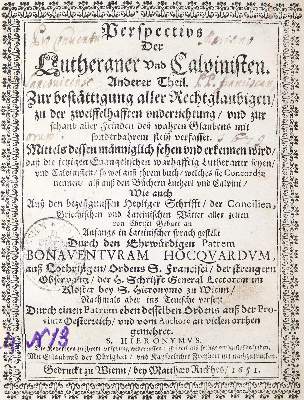 Perspectivs
Der
Lutheraner vnd Calvinisten.
Anderer Theil.
Zur bestättigung aller Rechtglaubigen/
zu der zweiffelhafften vnderrichtung / vnd zur
schand aller Feinden des wahren Glaubens mit
verfasset.
Mittels dessen männiglich sehen vnd erkennen wird/
daß die jetzigen Evangelischen warhafftig Lutheraner seyen/
vnd Calvinisten / so wol auß jhrem buch / welches sie Concordiæ
nennen / als auß den Büchern Lutheri vnd Calvini /
Wie auch
Auß den Heyliger Schrifft / der Concilien,
Griechischen vnd Lateinischen Vätter aller zeiten
von Christi Geburt an
Anfangs in Lateinischer sprach gestelt
Durch den Ehrwürdigen Patrem
BONAVENTVRAM HOCQVARDVM,
auß Lothringen / Ordens S. Francisci / der strengern
Observantz / der H. Schrifft General Lectorem im
Kloster bey S. Hieronymo zu Wienn /
Nachmals aber ins Teutsche versetzt
Durch einen Patrem eben desselben Ordens auß der Provintz
Oesterreich / vnd vom Authore an vielen orthen
gemehret.
S. HIERONYMVS.
Mit Erlaubnuß der Obrigkeit / vnd Kayserlicher Freyheit nit nachzudrucken.
Gedruckt zu Wienn / bey Matthæo Rickhes / 1651.
N 13